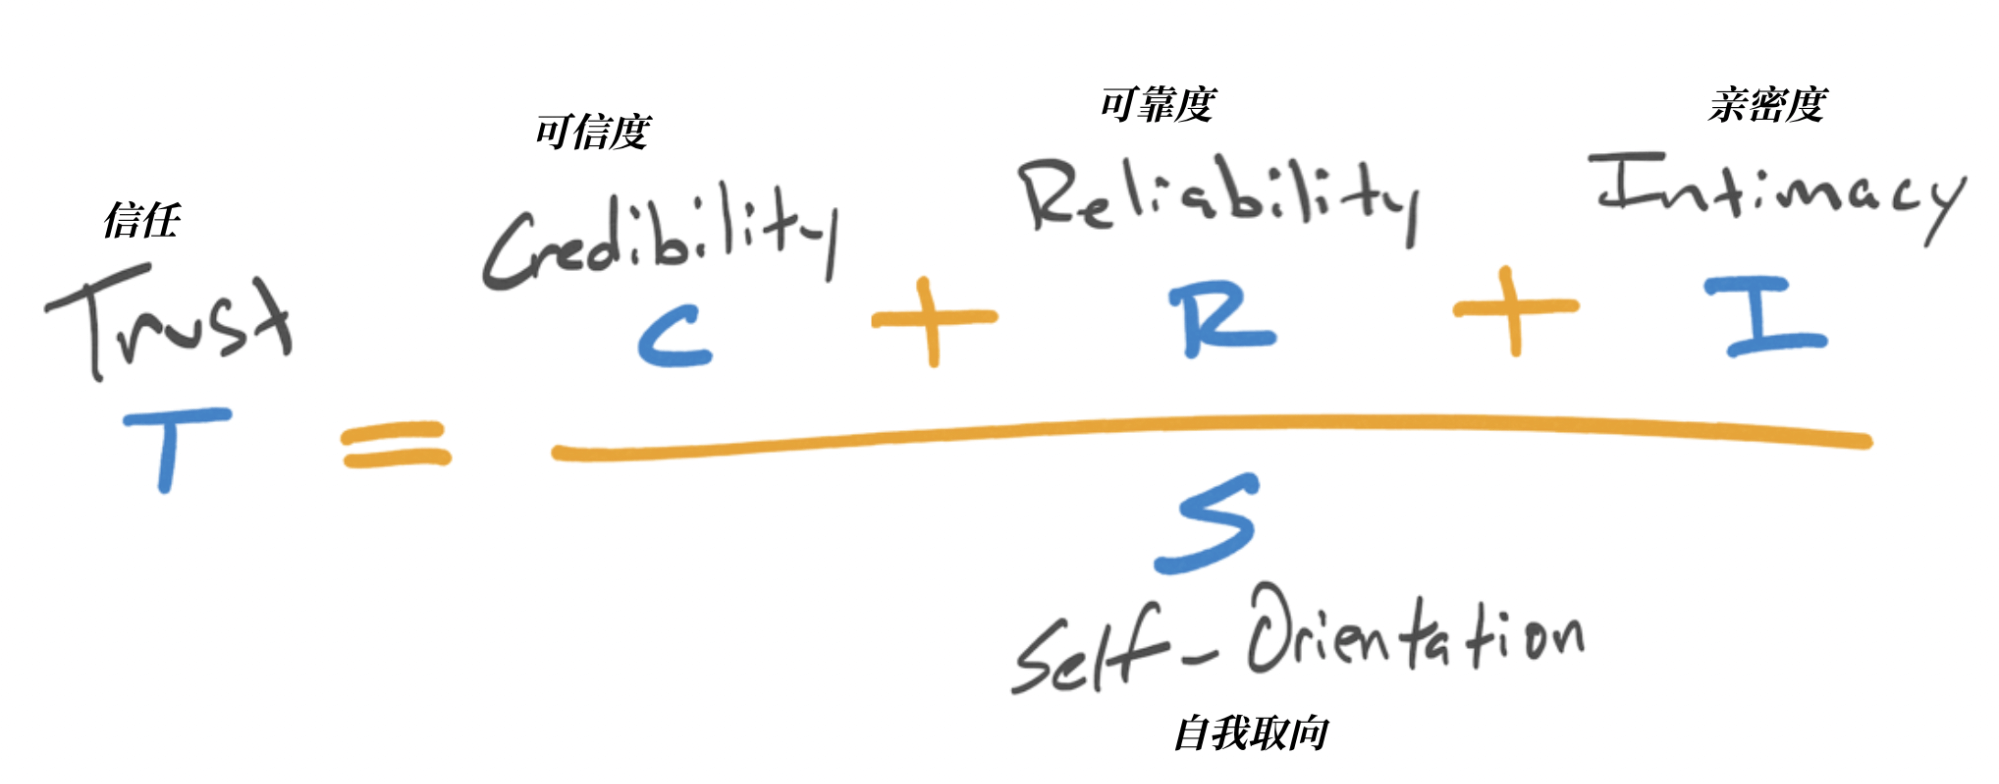 信任
Trust
T
=
可信度
Credibility
C
+
可靠度
Reliability
R
+
亲密度
Intimacy
I
S
Self-Orientation
自我取向